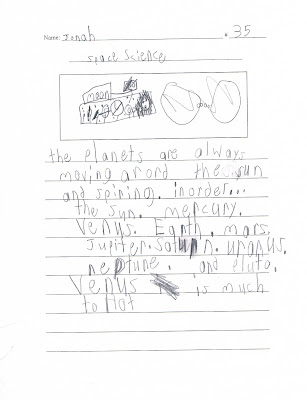 Name: Jonah .35
Space Science
moon
the planets are always
moving arond the sun
and spining. inorder...
the sun. mercury.
Venus. Earth. mars.
Jupiter. Saturn. uranus.
neptune. and pluto.
Venus is much
to Hot